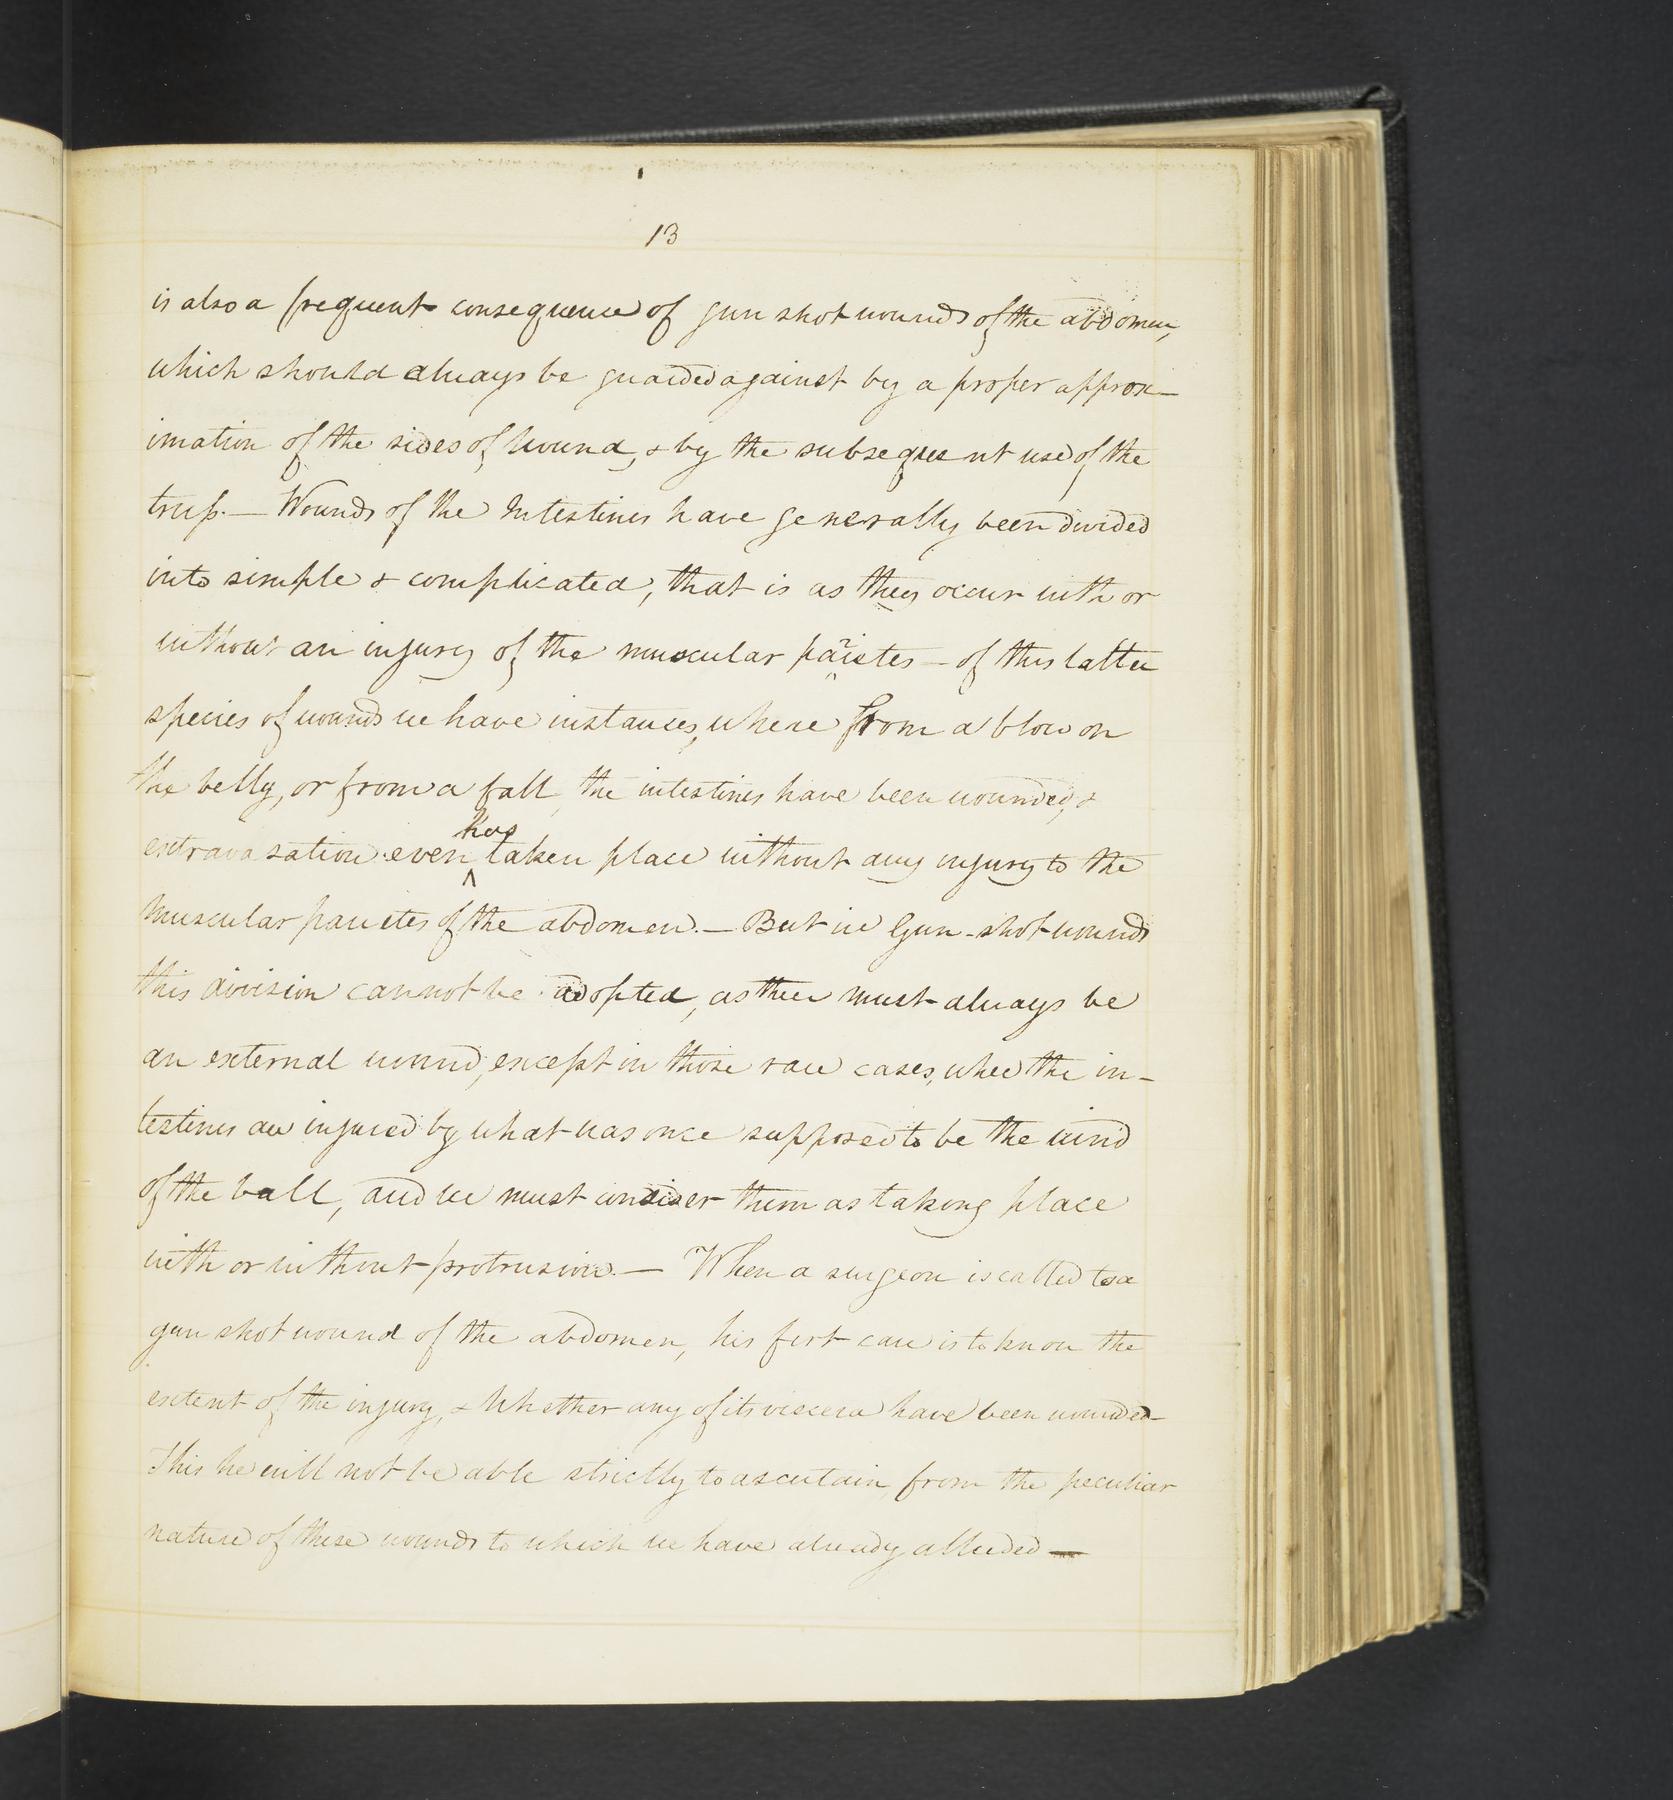 13
is also a frequent consequence of gun shot wounds of the abdomen,
which should always be guarded against by a proper approx-
imation of the sides of wound, & by the subsequent use of the
truss. — Wounds of the Intestines have generally been divided
into simple & complicated, that is as they occur with or
without an injury of the muscular parietes — of this latter
species of wounds we have instances, where from a blow on
the belly, or from a fall, the intestines have been wounded, &
has
extravasation even taken place without any injury to the
muscular parietes of the abdomen. — But in Gun-shot wounds
this division cannot be adopted, as there must always be
an external wound, except in those rare cases, where the in-
testines are injured by what was once supposed to be the wind
of the ball, and we must consider them as taking place
with or without protrusion. — When a surgeon is called to a
gun shot wound of the abdomen, his first care is to know the
extent of the injury, & whether any of its viscera have been wounded —
This he will not be able strictly to ascertain from the peculiar
nature of these wounds to which we have already alluded —